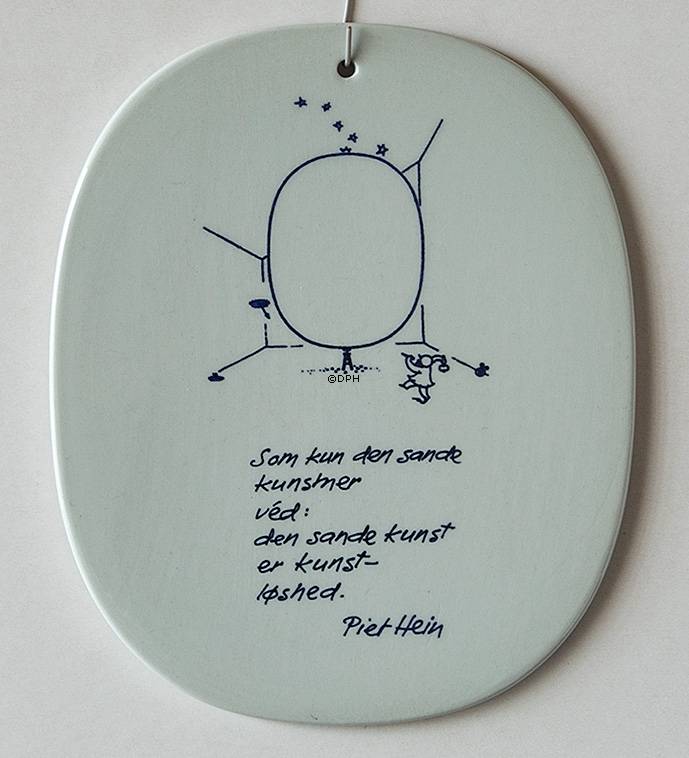 ©DPH
Som kun den sande
kunstner
véd:
den sande kunst
er kunst-
løshed.
Piet Hein